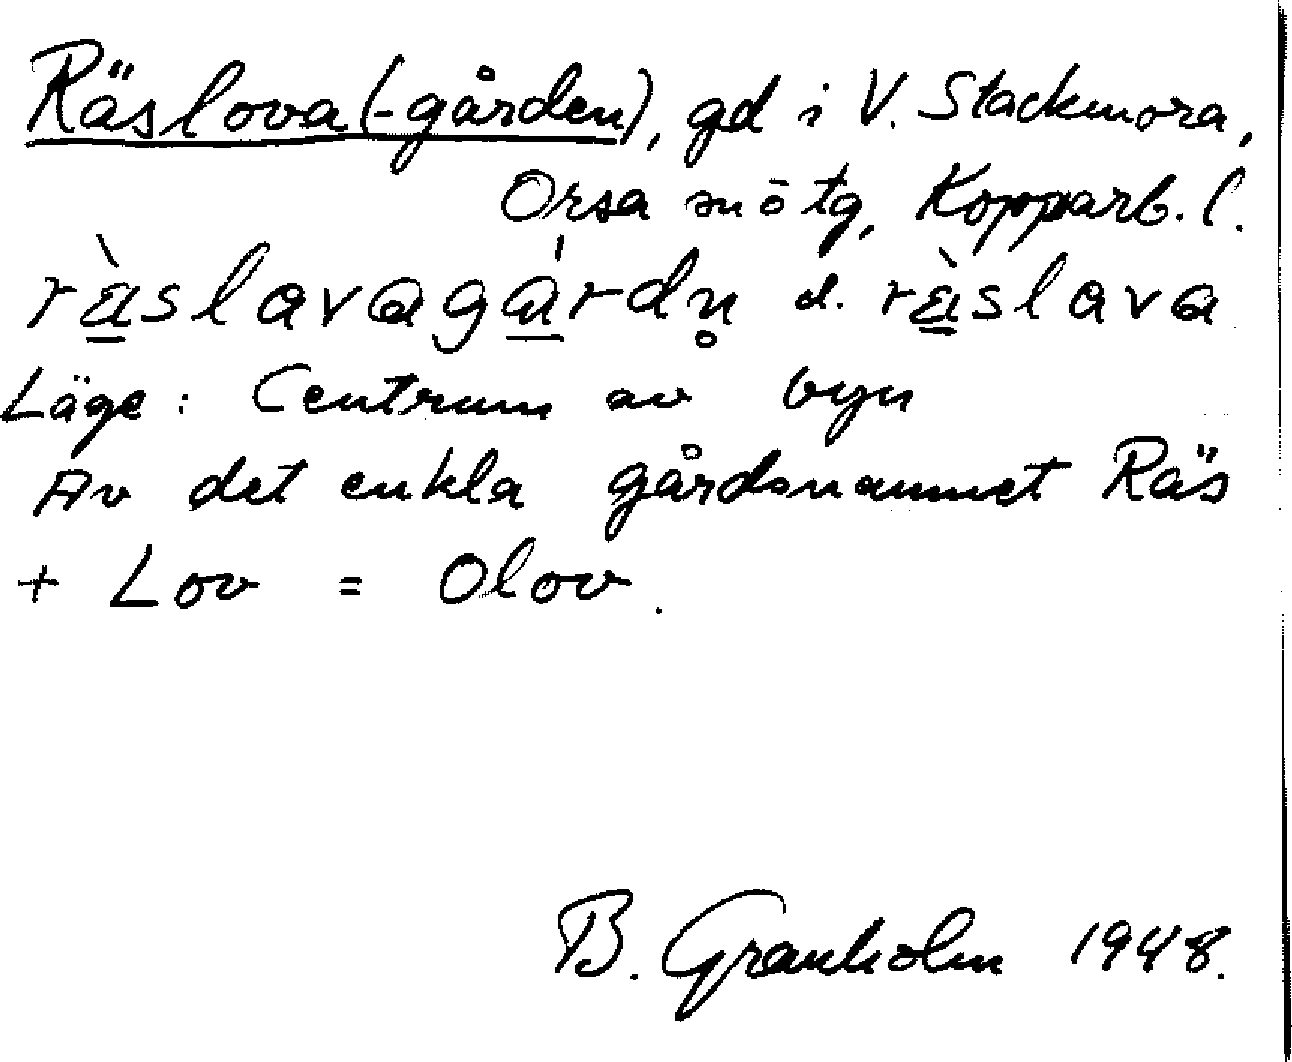 Räslova(-gården), gd i V. Stackmora,
Orsa sn o tg, Kopparb. l.
ràslavagárdn̥ d. ràslava
Läge: Centrum av byn
Av det enkla gårdsnamnet Räs
+ Lov = Olov.
B. Granholm 1948.